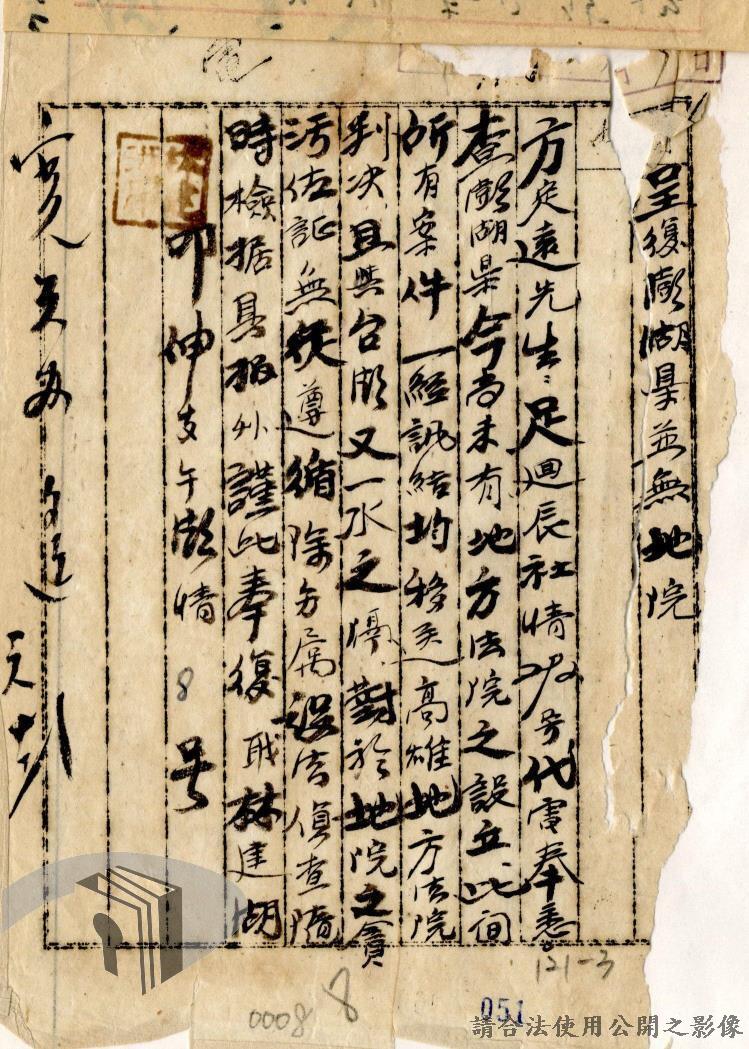 呈復澎湖县並無地院
方定遠先生：足迴辰社情 号代電奉悉。
查澎湖县今尚未有地方法院之設立此间
所有案件一經訊結均移送高雄地方法院
判决且與台澎又一水之隔對於地院之貪
污佐証無從遵循除分屬 偵查隨
時檢据具报外謹此奉復 耿林建湖
叩仲支午澎情8号
121-3
0008
8
051
請合法使用公開之影像